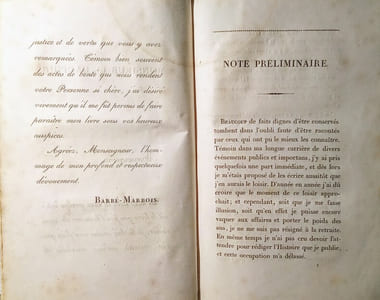 justice et de vertu que vous y avez
remarqués. Témoin bien souvent
des actes de bonté qui nous rendent
votre Personne si chère, j'ai désiré
vivement qu'il me fût permis de faire
paraître mon livre sous vos heureux
auspices.
Agréez, Monseigneur, l'hom-
mage de mon profond et respectueux
dévouement.
BARBÉ-MARBOIS.
NOTE PRÉLIMINAIRE.
BEAUCOUP de faits dignes d'être conservés
tombent dans l'oubli faute d'être racontés
par ceux qui ont pu le mieux les connaître.
Témoin dans ma longue carrière de divers
événements publics et importants, j'y ai pris
quelquefois une part immédiate, et dès lors
je m'étais proposé de les écrire aussitôt que
j'en aurais le loisir. D'année en année j'ai dû
croire que le moment de ce loisir appro-
chait; et cependant, soit que je me fasse
illusion, soit qu'en effet je puisse encore
vaquer aux affaires et porter le poids des
ans, je ne me suis pas résigné à la retraite.
En même temps je n'ai pas cru devoir l'at-
tendre pour rédiger l'Histoire que je publie,
et cette occupation m'a délassé.